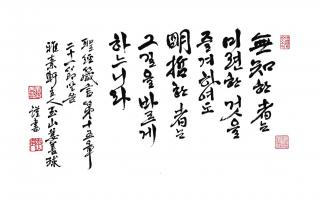 無知한 者는
미련한 것을
즐겨하여도
明哲한 者는
그 길을 바르게
하느니라
聖經箴言 第十五章
二十一節 말씀
軒主人 玉山
謹書